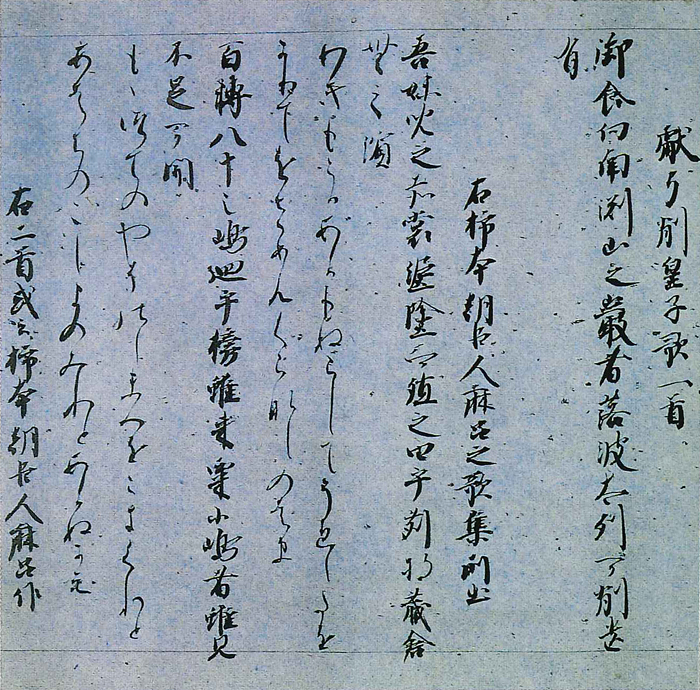 獻弓削皇子歌一首
御食向南渕山之巌者落波太列可削遺
有
右柿本朝臣人麻呂之歌集所出
吾妹兒之赤裳埿塗而殖之田乎苅将蔵倉
無之濱
わきもこかあかもぬらしてうゑしたを
かりてをさめんくらなしのはま
百轉八十之嶋廻乎榜雖来粟小嶋者雖見
不足可聞
もゝつてのやそのしまへをこきくれと
みれとあかぬかも
右二首或云柿本朝臣人麻呂作